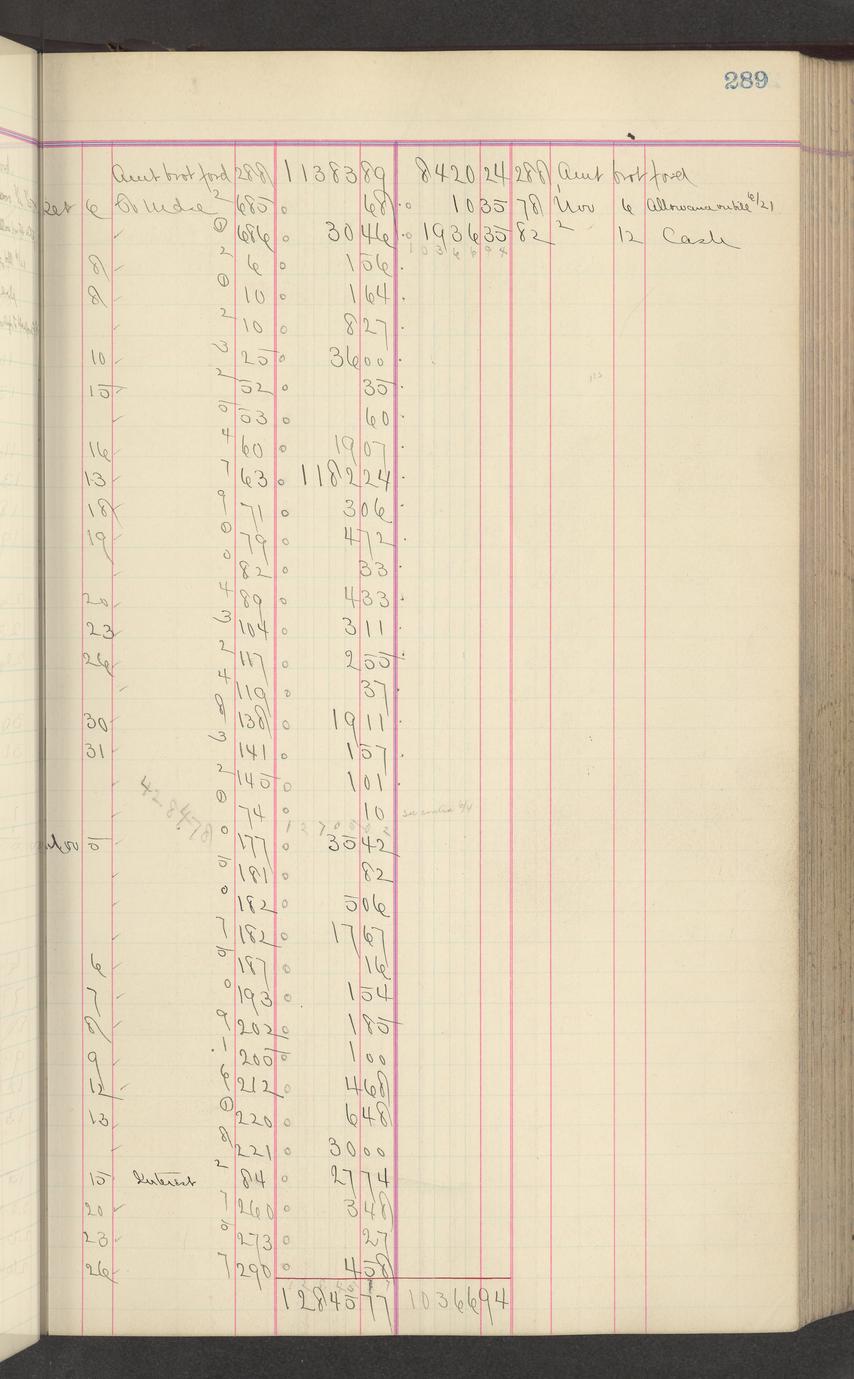 289
Amt brot ford 288 11383 89 8420 24 288 Amt brot ford
Oct 6 2 685 68 10 35 78 Nov 6 Allowance 6/21
1 686 30 46 1936 35 82 2 12 Cash
8 2 6 1 56 1036694
8 1 10 1 64
2 10 8 27
10 3 25 36 00
15 2 52 35
5 53 60
16 4 60 19 07
13 7 63 1182 24
18 9 71 3 06
19 1 79 4 72
0 82 33
20 4 89 4 33
23 3 104 3 11
26 2 117 2 55
4 119 37
30 8 138 19 11
31 3 141 1 57
2 145 1 01
428478 1 74 10
Nov 5 0 177 35 42
5 181 82
0 182 5 06
7 182 17 67
6 5 187 16
7 0 193 1 54
8 9 202 1 85
9 1 205 1 00
12 6 212 4 68
13 1 220 6 48
8 221 30 00
15 Interest 2 84 27 74
20 7 260 3 48
23 5 273 27
26 7 290 4 58
12845 77 10366 94